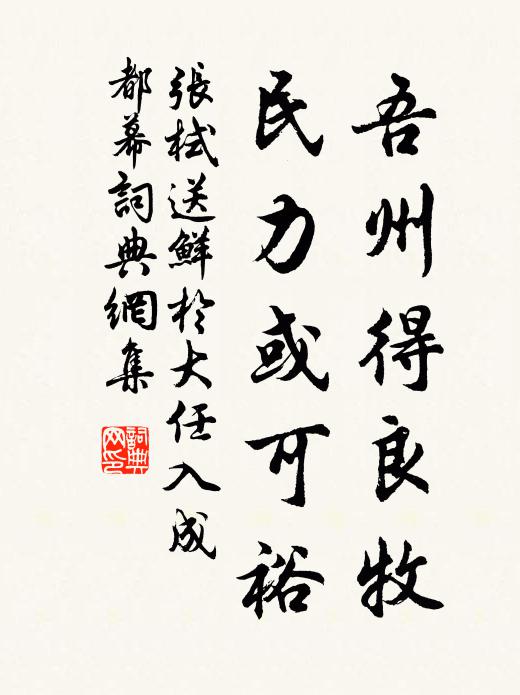 吾州得良牧
民力或可裕
張栻送鮮於大任入成
都幕詞典網集
詞典
网印